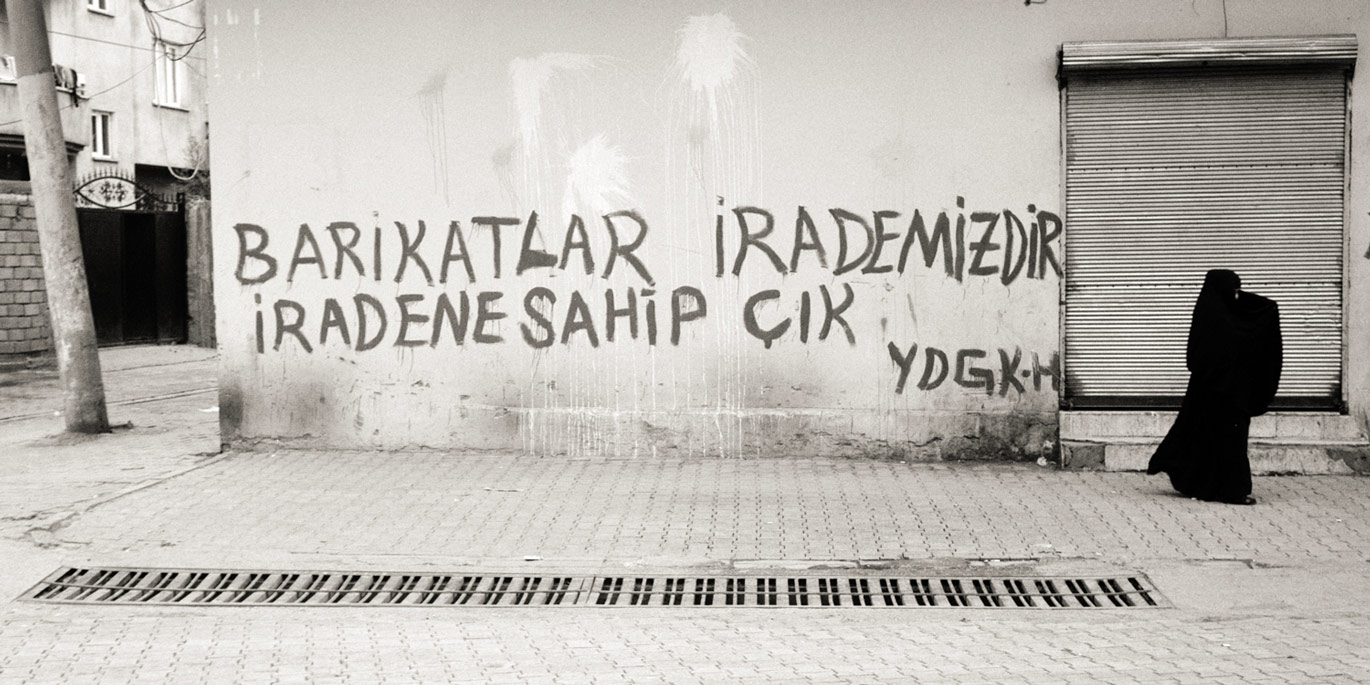 BARİKATLAR İRADEMİZDİR
İRADENE SAHİP ÇIK
YDGK-H